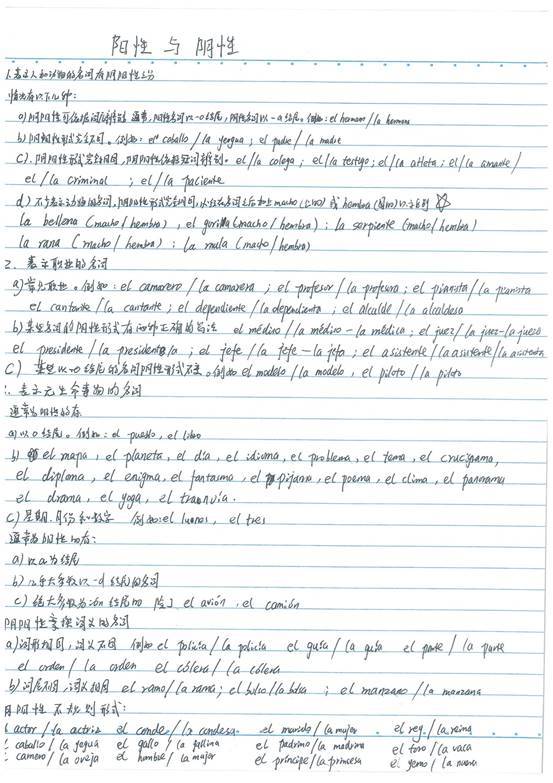 阳性 与 阴性
1.表示人和动物的名词有阴阳性之分
情况有以下几种:
a)阴阳性可依据词尾辨别 通常,阳性名词以-o结尾,阴性名词以-a结尾。例如: el hermano/la hermana
b)阴阳性形式完全不同。例如: el caballo/la yegua ; el padre/la madre
c).阴阳性形式完全相同,阴阳性依据冠词辨别。el/la colega ; el/la testigo; el/la atleta; el/la amante/
el/la criminal ; el/la paciente
d)不少表示动物的名词,阴阳性形式完全相同,必须在名词之后加上macho(公的) 或 hembra(母的)以示区别
la bellena (macho/hembra) , el gorilla (macho/hembra) ; la serpiente (macho/hembra)
la rana (macho/hembra) ; la mula (macho/hembra)
2. 表示职业的名词
a)常见职业。例如: el camarero/la camarera ; el profesor/la profesora; el pianista/la pianista
el cantante/la cantante ; el dependiente/la dependienta ; el alcalde/la alcaldesa
b)某些名词的阴性形式有两种正确的写法 el médico/la médico-la médica; el juez/la juez-la jueza
el presidente/la presidente/a ; el jefe/la jefe-la jefa; el asistente/la asistente/la asistenta
C) 某些以-o结尾的名词阴阳性形式不变。例如 el modelo/la modelo, el piloto/la piloto
:. 表示无生命事物的名词
通常为阳性的有
a)以o结尾。例如: el pueblo, el libro
b) el mapa, el planeta, el día, el idioma, el problema, el tema, el crucigrama,
el diploma, el enigma, el fantasma, el pijama, el poema, el clima, el panorama
el drama, el yoga, el tranvía.
c)星期.月份和数字 例如:el lunes, el tres
通常为阴性的有:
a)以a为结尾
b)几乎大多数以-d结尾的名词
c)绝大多数为ión结尾的 除了 el avión, el camión
阴阳性变换词义的名词
a)词形相同,词义不同 例如 el policía/la policía el guía/la guía el parte/la parte
el orden/la orden el cólera/la cólera
b)词尾不同,词义相同 el ramo/la rama; el bolso/la bolsa ; el manzano/la manzana
阴阳性 不规则形式:
actor/la actriz el conde/la condesa. el marido/la mujer. el rey./la reina
caballo/la yegua el gallo/la gallina el padrino/la madrina el toro/la vaca
carnero/la oveja el hombre/la mujer el príncipe/la princesa el yerno/la nuera